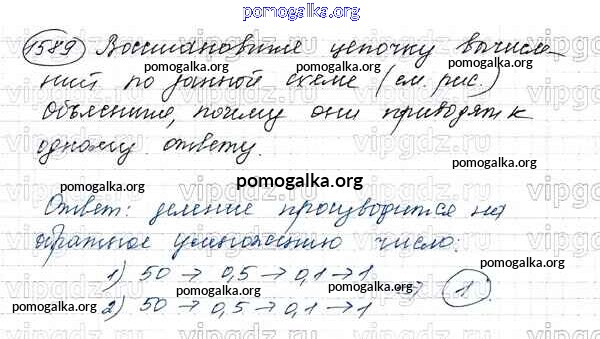 pomogalka.org
1589 Восстановите цепочку вычисле-
ний по данной схеме (см. рис.)
pomogalka.org
Объясните, почему они приводят к
одному ответу.
pomogalka.org
pomogalka.org
Ответ: деление производится на
pomogalka.org
обратное умножению число:
1) 50 → 0,5 → 0,1 → 1
pomogalka.org
→ 1
pomogalka.org
2) 50 → 0,5 → 0,1 → 1
pomogalka.org
vipgdz.ru